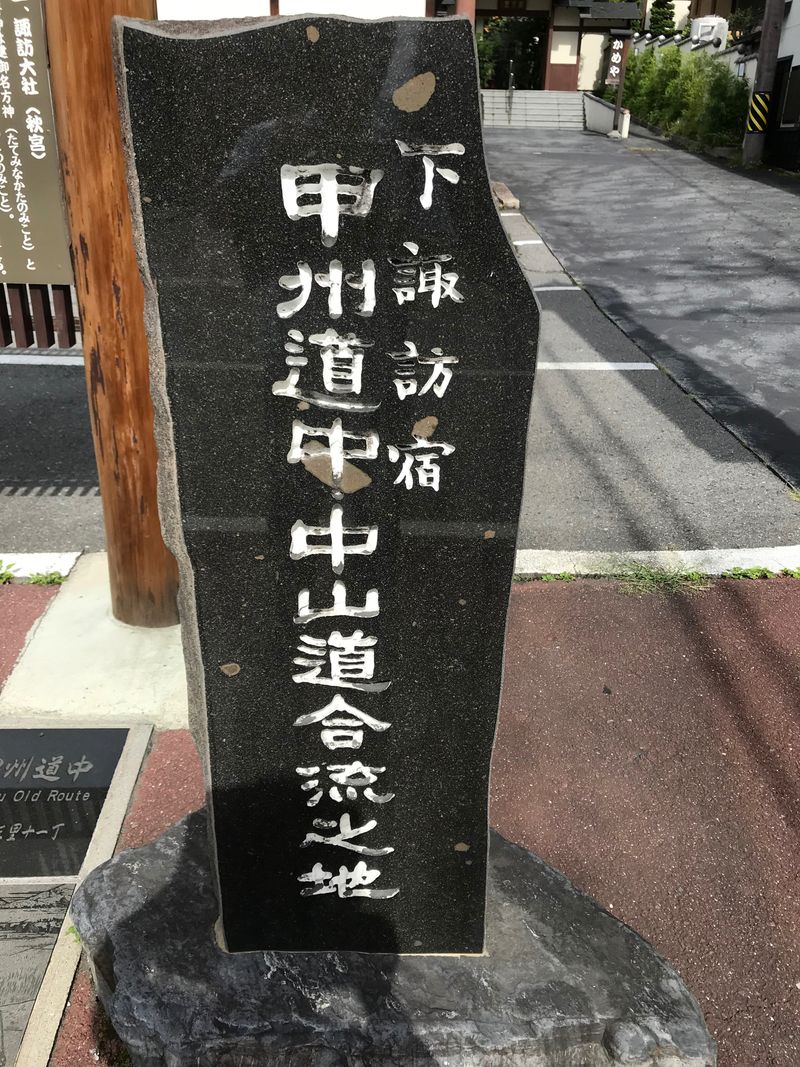 下諏訪宿
甲州道中・中山道合流之地
諏訪大社（秋宮）
御名方神（たてみなかたのみこと）と
のみこと）。
かめや
州道中
Old Route
里十一丁